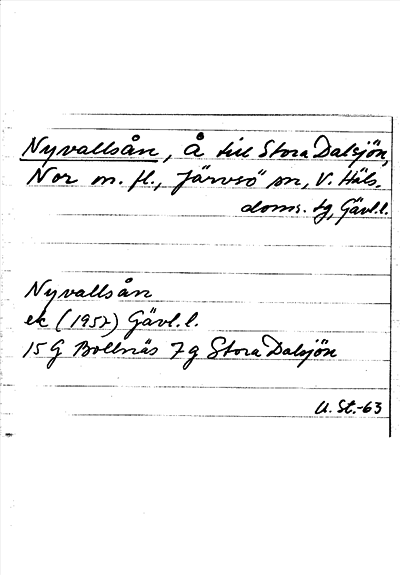 Nyvallsån, Å till Stora Dalsjön,
Nor m. fl., Järvsö sn, V. Häls.
doms. tg, Gävl.l.
Nyvallsån
ek (1957) Gävl.l.
15 G Bollnäs 7 g Stora Dalsjön
U. St.-63